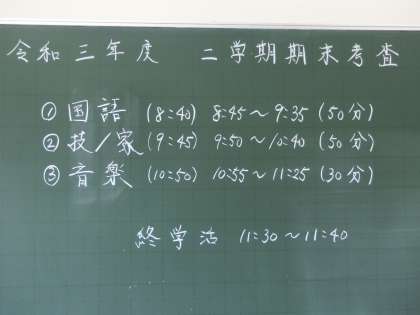 令和三年度 二学期期末考査
① 国語 (8:40) 8:45～9:35 (50分)
② 技/家 (9:45) 9:50～10:40 (50分)
③ 音楽 (10:50) 10:55～11:25 (30分)
終学活 11:30～11:40